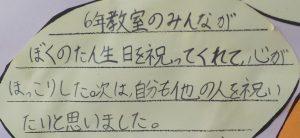 6年教室のみんなが
ぼくのたん生日を祝ってくれて、心が
ほっこりした。次は、自分も他の人を祝い
たいと思いました。